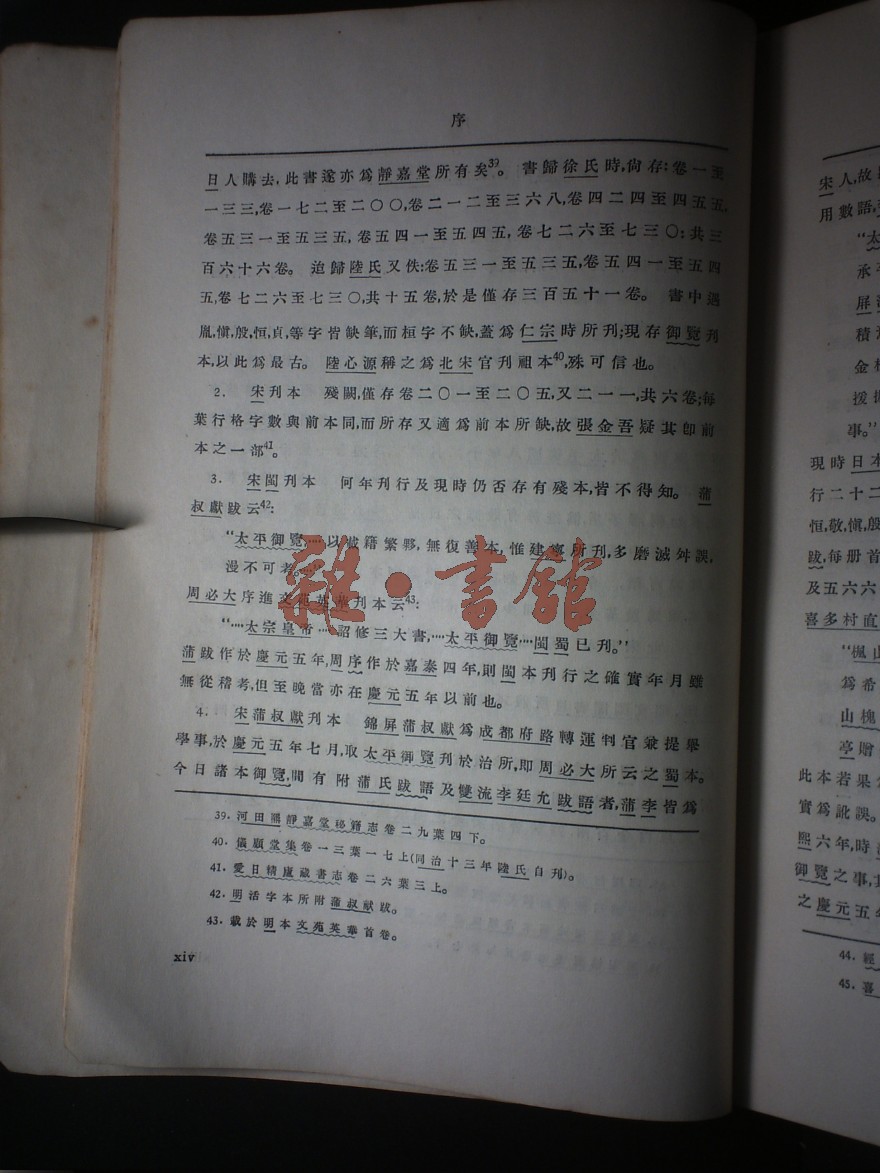 序
日人購去,此書遂亦爲靜嘉堂所有矣39。 書歸徐氏時,尙存:卷一至
一三三,卷一七二至二〇〇,卷二一二至三六八,卷四二四至四五五,
卷五三一至五三五,卷五四一至五四五,卷七二六至七三〇:共三
百六十六卷。 迨歸陸氏又佚:卷五三一至五三五,卷五四一至五四
五,卷七二六至七三〇,共十五卷,於是僅存三百五十一卷。 書中遇
胤,愼,殷,恒,貞,等字皆缺筆,而桓字不缺,蓋爲仁宗時所刋;現存御覽刋
本,以此爲最古。 陸心源稱之爲北宋官刋祖本40,殊可信也。
2. 宋刋本 殘闕,僅存卷二〇一至二〇五,又二一一,共六卷;每
葉行格字數與前本同,而所存又適爲前本所缺,故張金吾疑其卽前
本之一部41。
3. 宋閩刋本 何年刋行及現時仍否存有殘本,皆不得知。 蒲
叔獻跋云42:
“太平御覽,····以載籍繁夥,無復善本,惟建寧所刋,多磨滅舛誤,
漫不可考。····”
周必大序進文苑英華刋本云43:
“····太宗皇帝····詔修三大書,····太平御覽····閩蜀已刋。”
蒲跋作於慶元五年,周序作於嘉泰四年,則閩本刋行之確實年月雖
無從稽考,但至晚當亦在慶元五年以前也。
4. 宋蒲叔獻刋本 錦屏蒲叔獻爲成都府路轉運判官兼提舉
學事,於慶元五年七月,取太平御覽刋於治所,卽周必大所云之蜀本。
今日諸本御覽,閒有附蒲氏跋語及雙流李廷允跋語者,蒲李皆爲
39. 河田羆靜嘉堂秘籍志卷二九葉四下。
40. 儀顧堂集卷一三葉一七上(同治十三年陸氏自刊)。
41. 愛日精廬藏書志卷二六葉三上。
42. 明活字本所附蒲叔獻狀。
43. 載於明本文苑英華首卷。
xiv
雜·書館
宋人,故
用數語,
“太
承
屏
積
金
援
事。”
現時日本
行二十二
恒,敬,愼,殷
跋,每册首
及五六六
喜多村直
“楓山
爲希
山槐
亭贈
此本若果
實爲訛誤。
熙六年,時
御覽之事,其
之慶元五年
44. 經
45. 喜